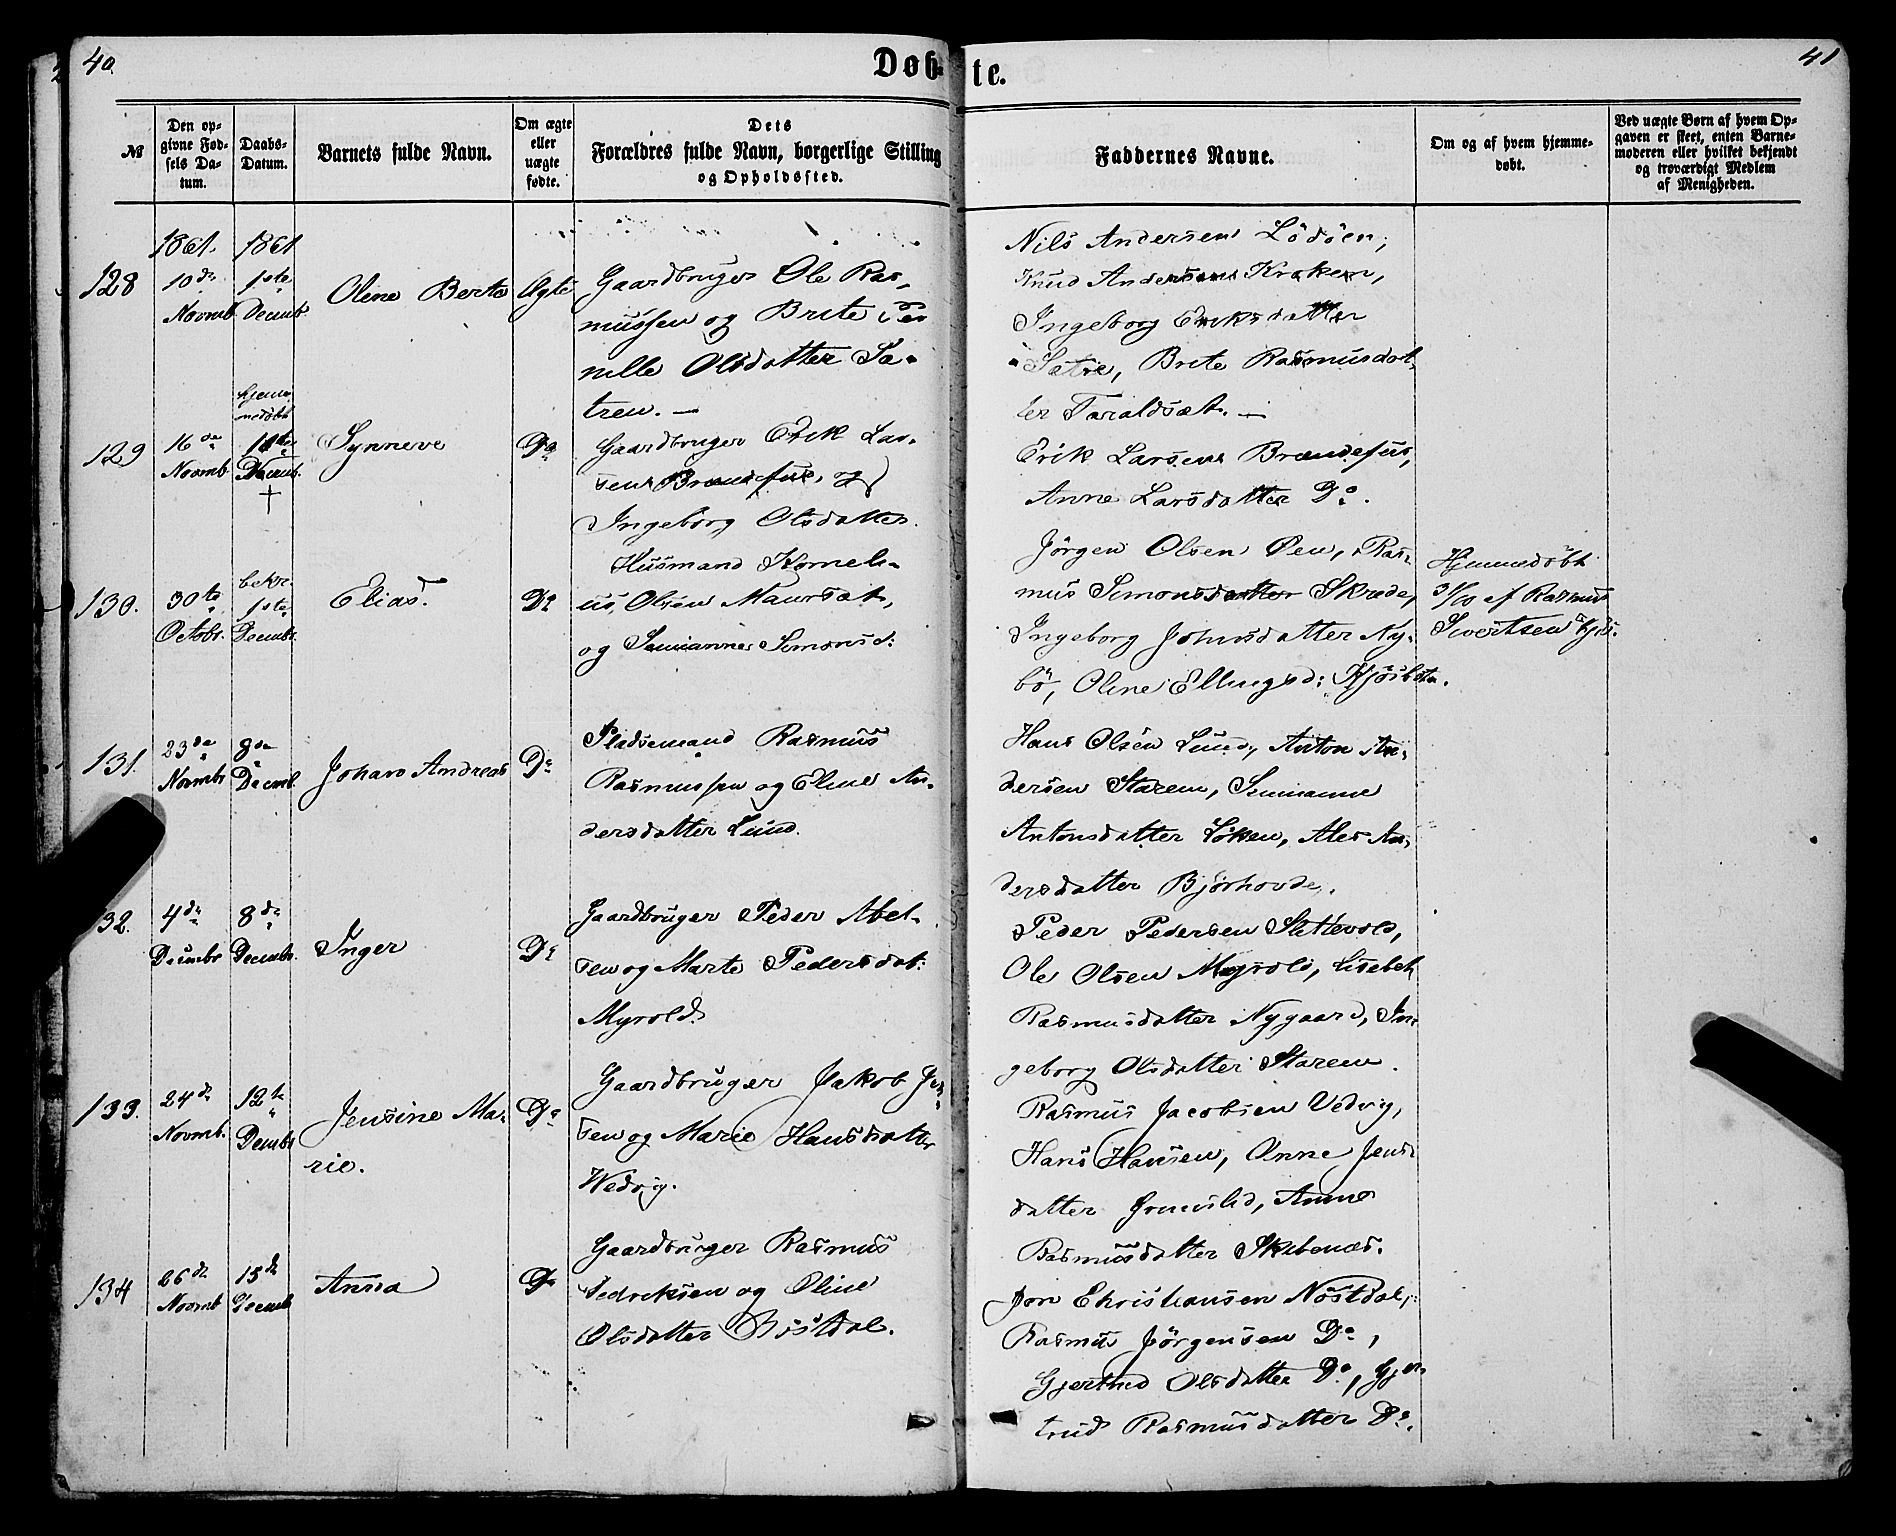 40.
Døb-
te.
41
№
Den op-
givne Fød-
sels Da-
tum.
Daabs-
Datum.
Barnets fulde Navn.
Om ægte
eller
uægte
fødte.
Dets
Forældres fulde Navn, borgerlige Stilling
og Opholdssted.
Faddernes Navne.
Om og af hvem hjemme-
døbt.
Ved uægte Børn af hvem Op-
gaven er skeet, enten Barne-
moderen eller hvilket bekjendt
og troværdigt Medlem
af Menigheden.
1861. 1861
128
10de
Novmb.
1ste
Decmb.
Oline Berte
Ægte
Gaardbruger Ole Ras-
mussen og Brite Per
nille Olsdatter Sæ-
tren. —
Nils Andersen Lödöen,
Knud Andersen Kraken,
Ingeborg Eriksdatter
Sætre, Brite Rasmusdat-
ter Taraldsæt. —
129
16de
Novmb.
hjem-
medöbt
1ste
Decmb.
†
Synneve
Do
Gaardbruger Erik Lar-
sen Brandefue, og
Ingeborg Olsdatter.
Erik Larsen Brandefue,
Anne Larsdatter Do.
130.
30te
Octobr.
bekr.
1ste
Decmbr.
Elias.
Do
Husmand Korneli-
us Olsen Maursæt,
og Simianne Simonsd:
Jörgen Olsen Öen, Ras-
mus Simonsdatter Skrede,
Ingeborg Johnsdatter Ny-
bö, Oline Ellingsd:
Hjemmedöbt
31/10 af Rasmus
Sivertsen
131.
23de
Novmbr
8de
Decmb.
Johan Andreas
Do
Pladsemand Rasmus
Rasmussen og Eline An-
dersdatter Lund.
Hans Olsen Lund, Anton An-
dersen Staren, Simianne
Antonsdatter Löken, Ales An-
dersdatter Bjørhovde.
32.
4de
Decmbr
8de
Decmbr.
Inger
Do
Gaardbruger Peder Abel-
sen og Marte Pedersdat:
Myrold.
Peder Pedersen Slettevold,
Ole Olsen Myrold, Lisebet
Rasmusdatter Nygaard, In-
geborg Olsdatter Staren.
133.
24de
Novmb.
12te
Decmbr
Jensine Ma-
rie.
Do
Gaardbruger Jakob Jen-
sen og Marie Hansdatter
Wedvig.
Rasmus Jacobsen Vedvig,
Hans Hansen, Anne Jens-
datter Grimslid, Anne
Rasmusdatter Skibenæs.
134
26de
Novmb
15de
Decmb
Anna
Do
Gaardbruger Rasmus
Fedriksen og Oline
Olsdatter
Jon Christiansen Nöstdal,
Rasmus Jörgensen Do,
Gjertrud Olsdatter Do, Gjer
trud Rasmusdatter Do.